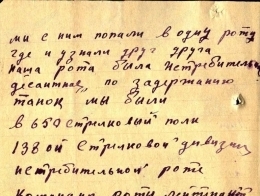 мы с ним попали в одну роту
где и узнали друг друга
наша рота была истребительно
десантная по задержанию
танок мы были
в 650 стрилковый полк
138 ой стрилковой дивизии
истребительной роте
Командир роты лейтинант